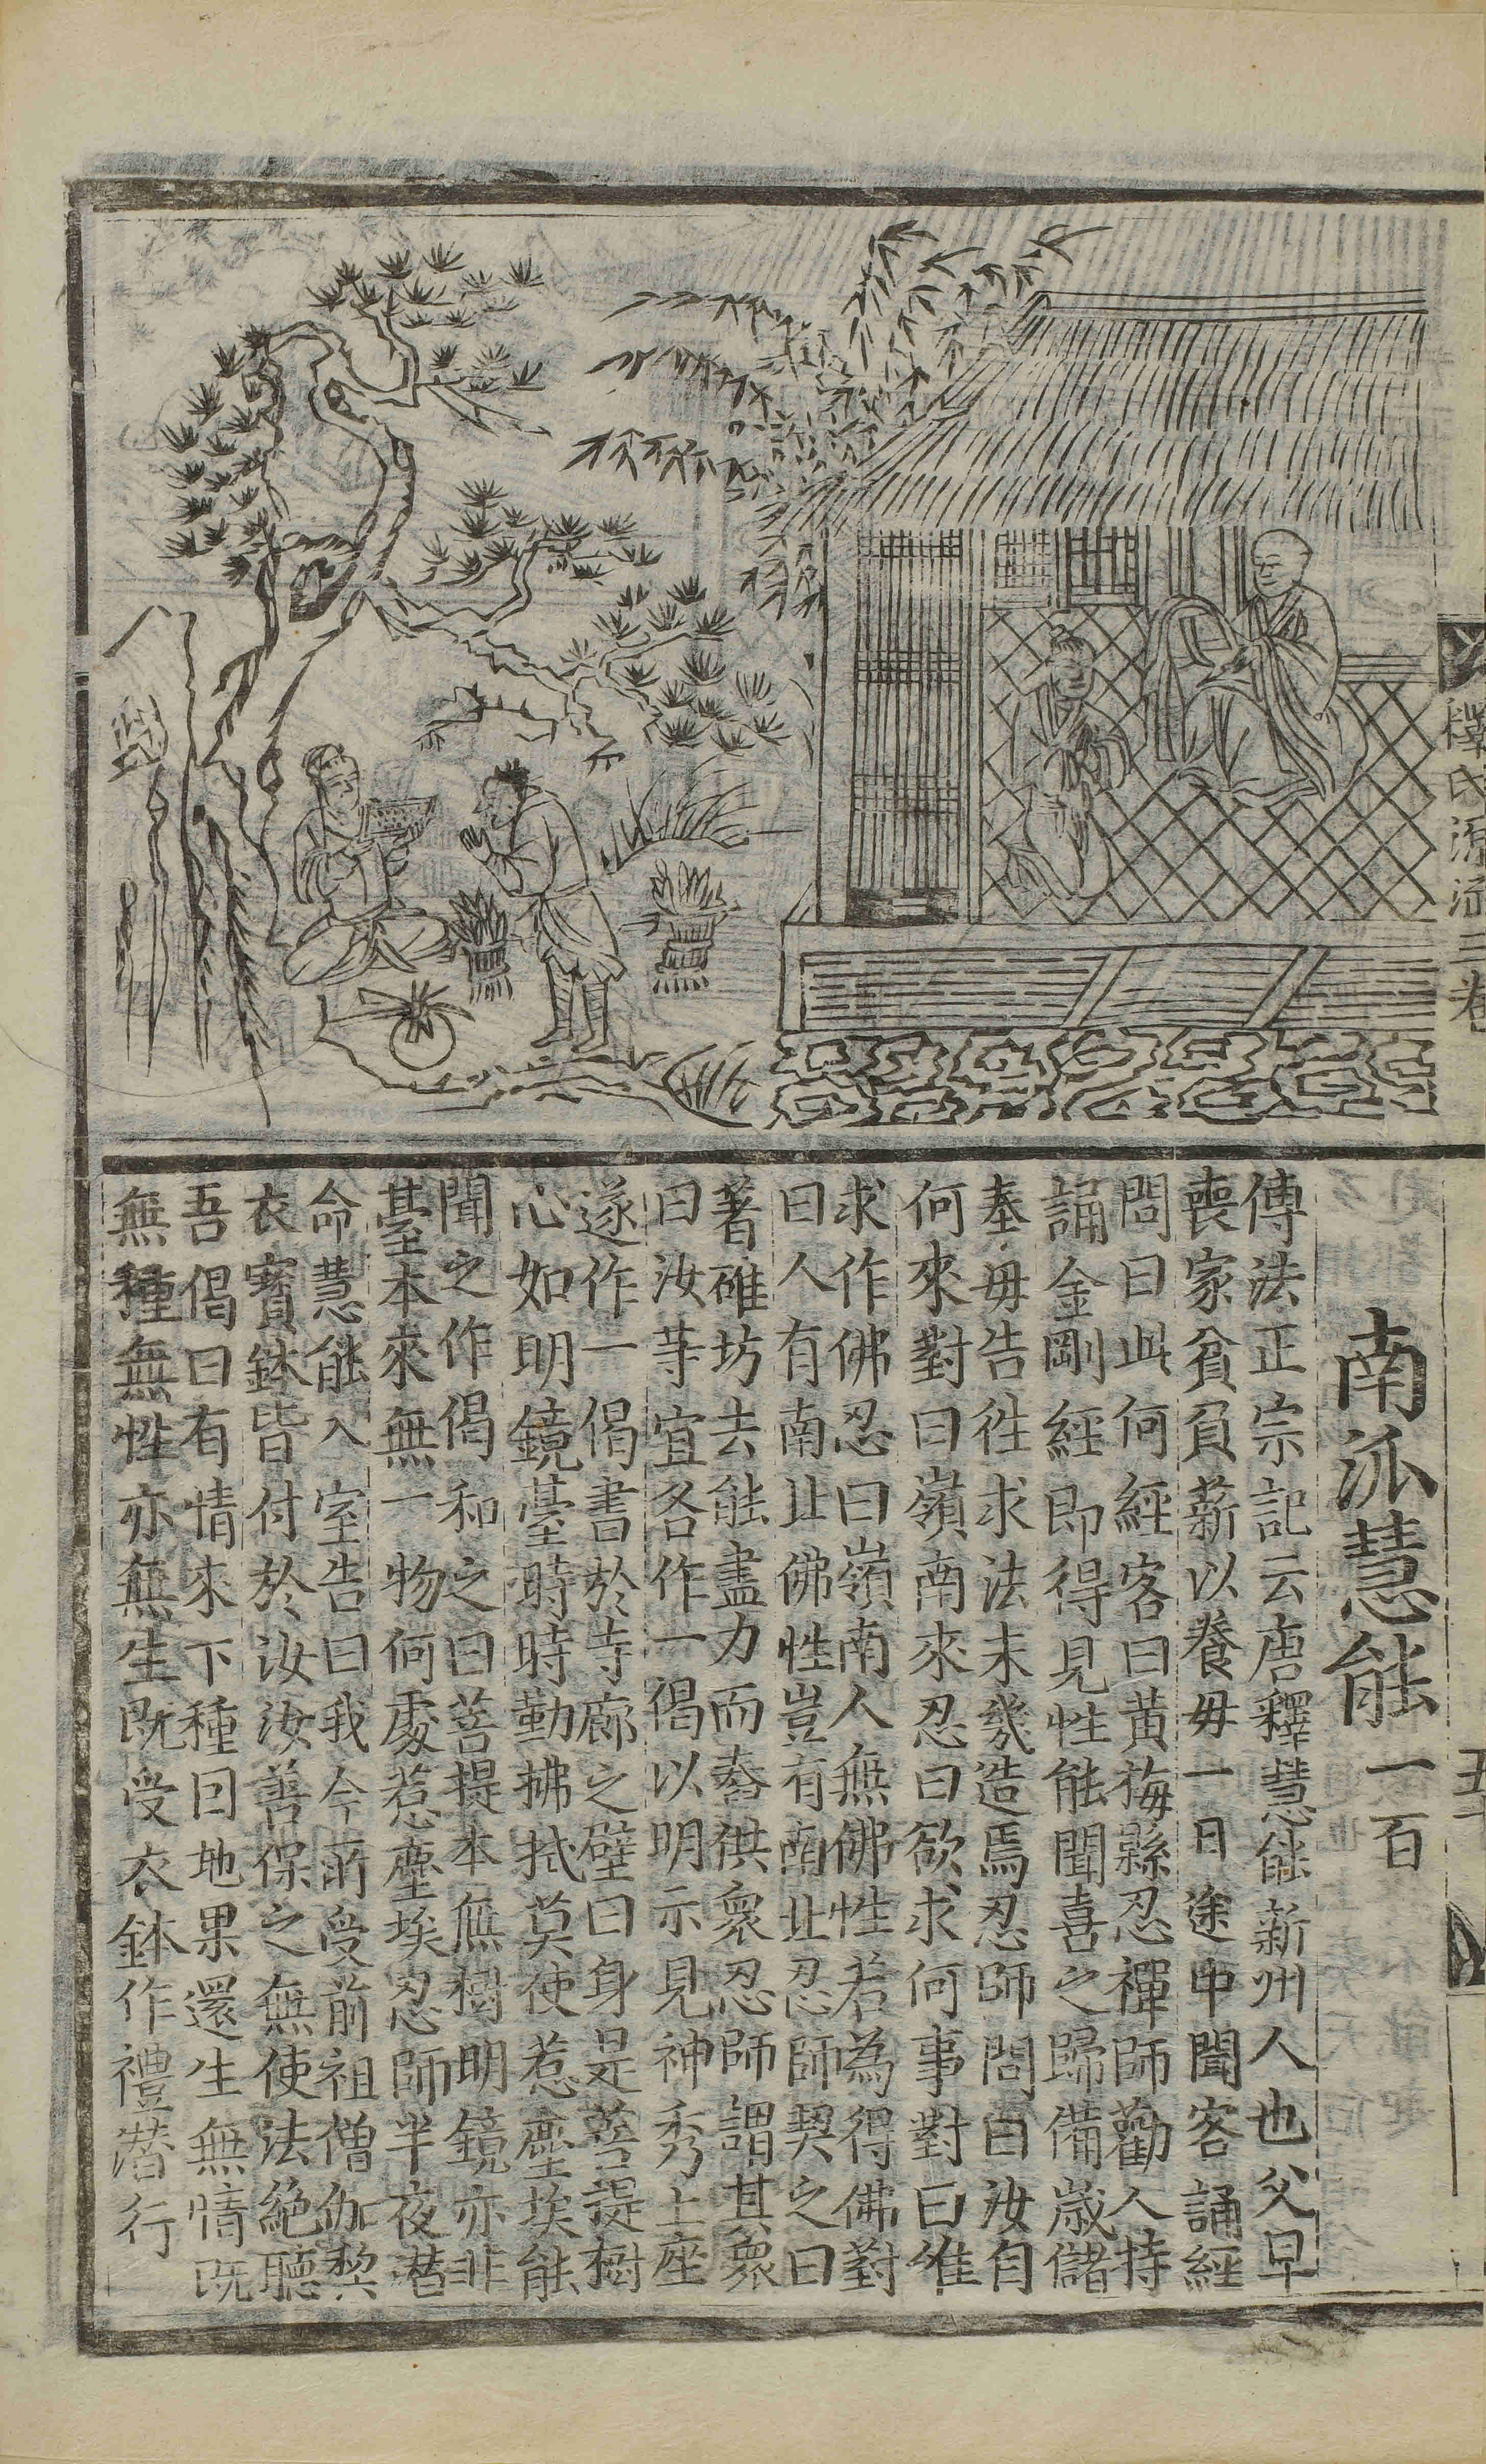 釋氏源流三卷
南派慧能一百
傳法正宗記云唐釋慧能新州人也父早
喪家貧負薪以養毋一日途中聞客誦經
問曰此何經客曰黃梅縣忍禪師勸人持
誦金剛經即得見性能聞喜之歸備歲儲
奉毋告徃求法未幾造焉忍師問曰汝自
何來對曰嶺南來忍曰欲求何事對曰惟
求作佛忍曰嶺南人無佛性若為得佛對
曰人有南北佛性豈有南北忍師契之曰
著碓坊去能盡力而舂供衆忍師謂其衆
曰汝等宜各作一偈以明示見神秀上座
遂作一偈書於寺廊之壁曰身是菩提樹
心如明鏡臺時時勤拂拭莫使惹塵埃能
聞之作偈和之曰菩提本無樹明鏡亦非
臺本來無一物何處惹塵埃忍師半夜潛
命慧能入室告曰我今所受前祖僧伽棃
衣寶鉢皆付於汝汝善保之無使法絕聽
吾偈曰有情來下種因地果還生無情既
無種無性亦無生既受衣鉢作禮潛行